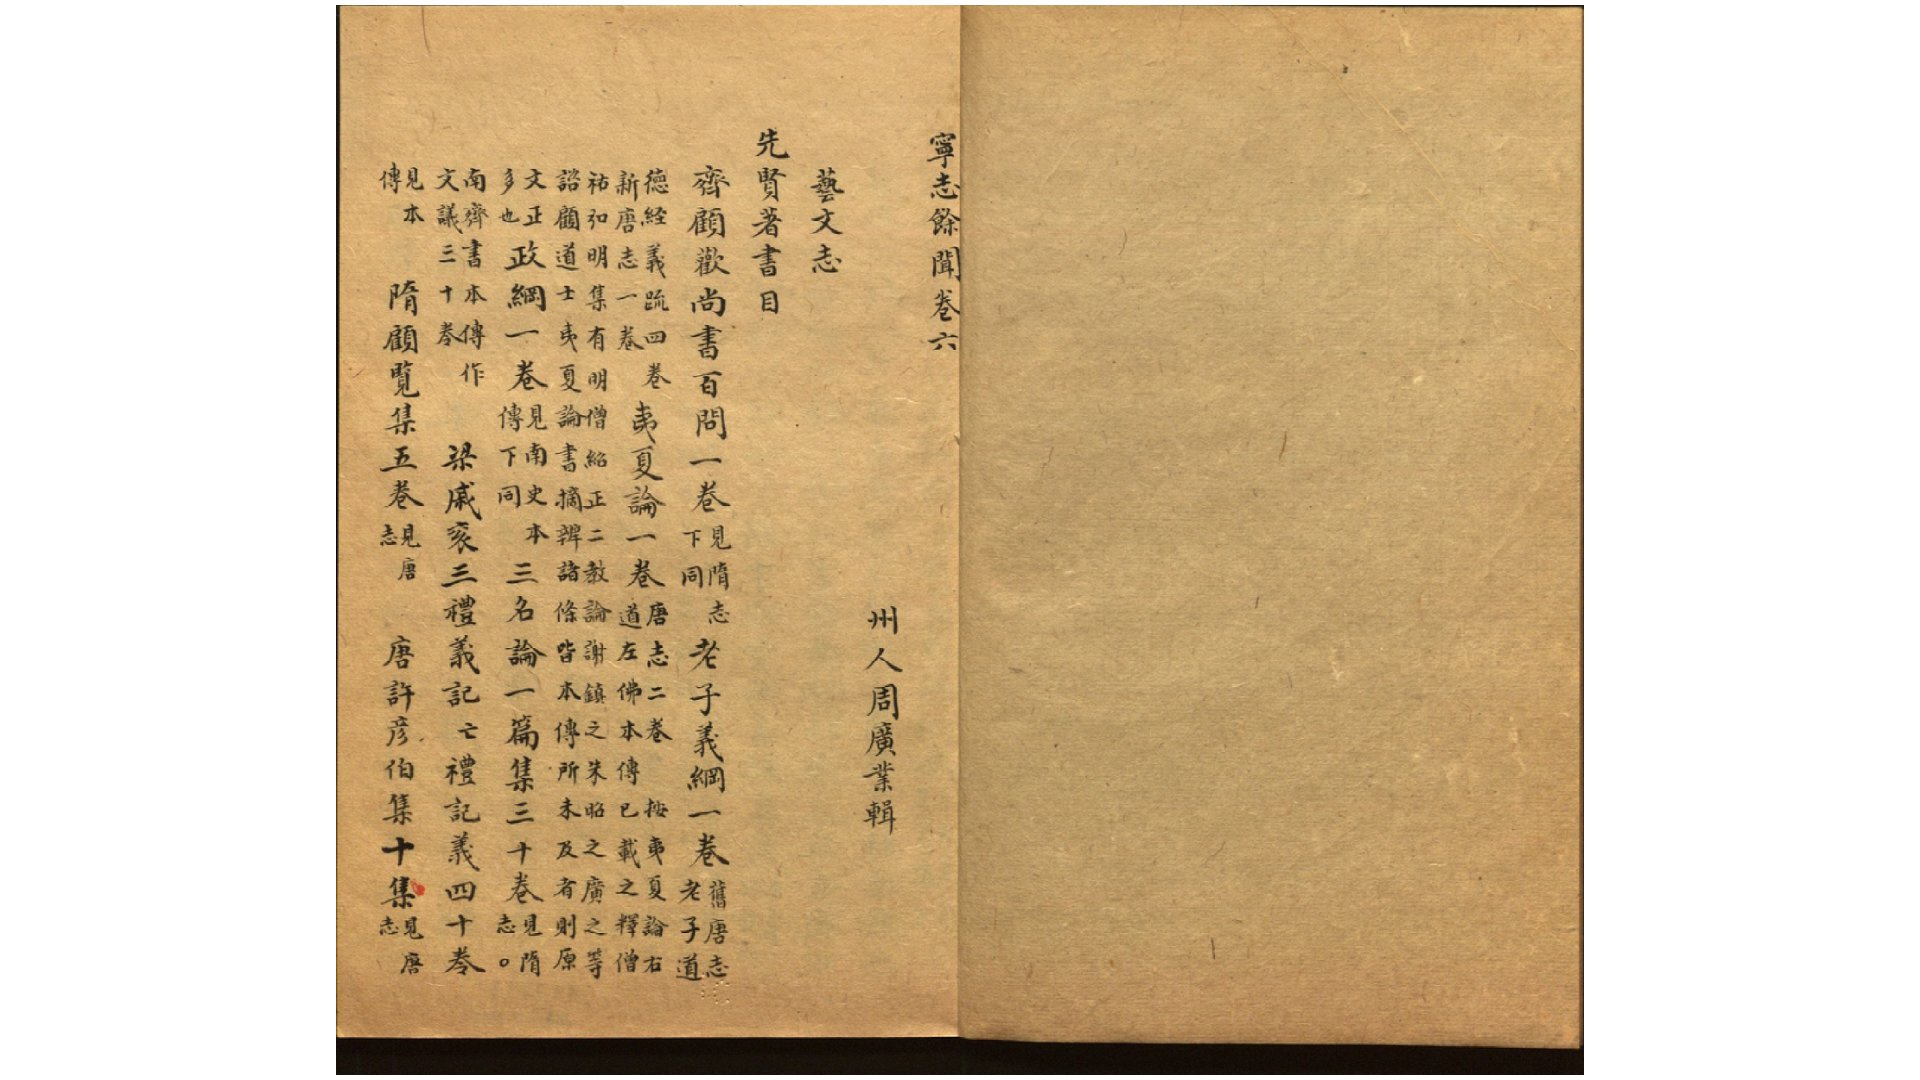 寧志餘聞卷六
州人周廣業輯
藝文志
先賢著書目
齊顧歡尚書百問一卷見隋志下同老子義綱一卷舊唐志老子道
德経義疏四卷新唐志一卷夷夏論一卷唐志二卷 按夷夏論右道左佛本傳已載之釋僧
祐弘明集有明僧紹正二教論謝鎮之朱昭之廣之等諮顧道士夷夏論書摘辨諸條皆本傳所未及者則原
文正多也政綱一卷見南史本傳下同三名論一篇集三十卷見隋志。
南齊書本傳作文議三十卷 梁戚衮三禮義記亡禮記義四十卷
見本傳 隋顧覽集五卷見唐志 唐許彦伯集十集見唐志